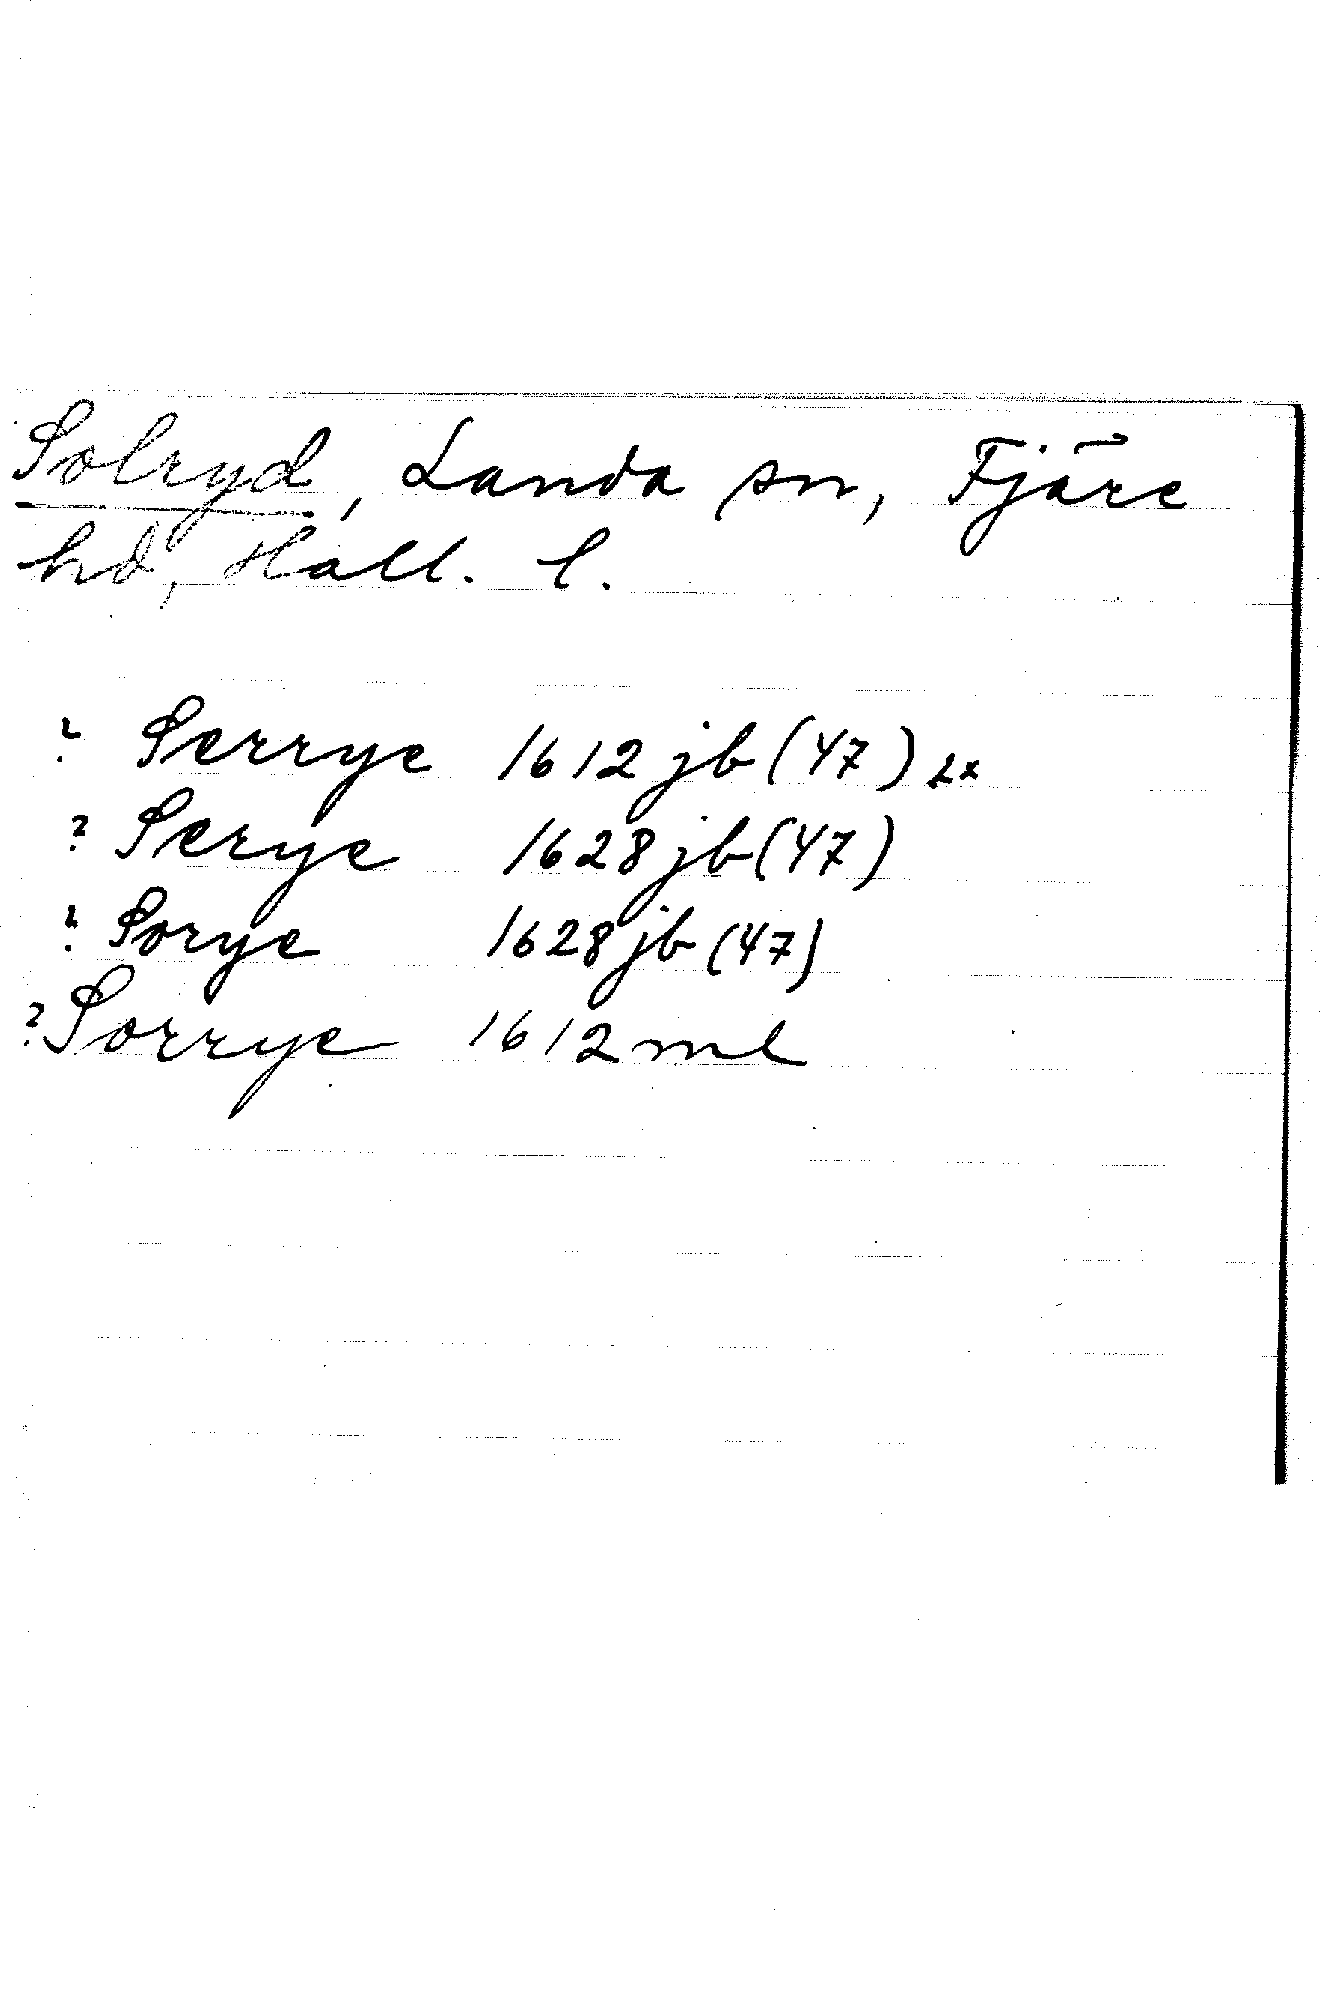 Solryd, Landa sn, Fjäre
hd, Hall. l.
? Serrye 1612 jb (47) 2x
? Serye 1628 jb (47)
? Sorye 1628 jb (47)
? Sorrye 1612 ml